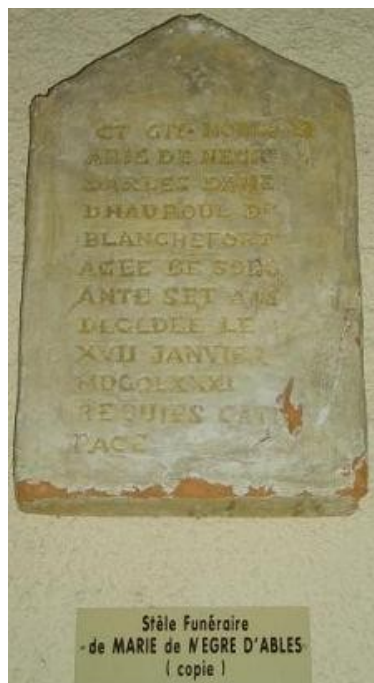 CT GIT NOBLe M
ARIE DE NEGRe
DARLES DAME
DHAUPOUL De
BLANCHEFORT
AGEE DE SOIX
ANTE SET ANS
DECEDEE LE
XVII JANVIER
MDCOLXXXI
REQUIES CATIN
PACE
Stèle Funéraire
- de MARIE de NEGRE D'ABLES -
( copie )